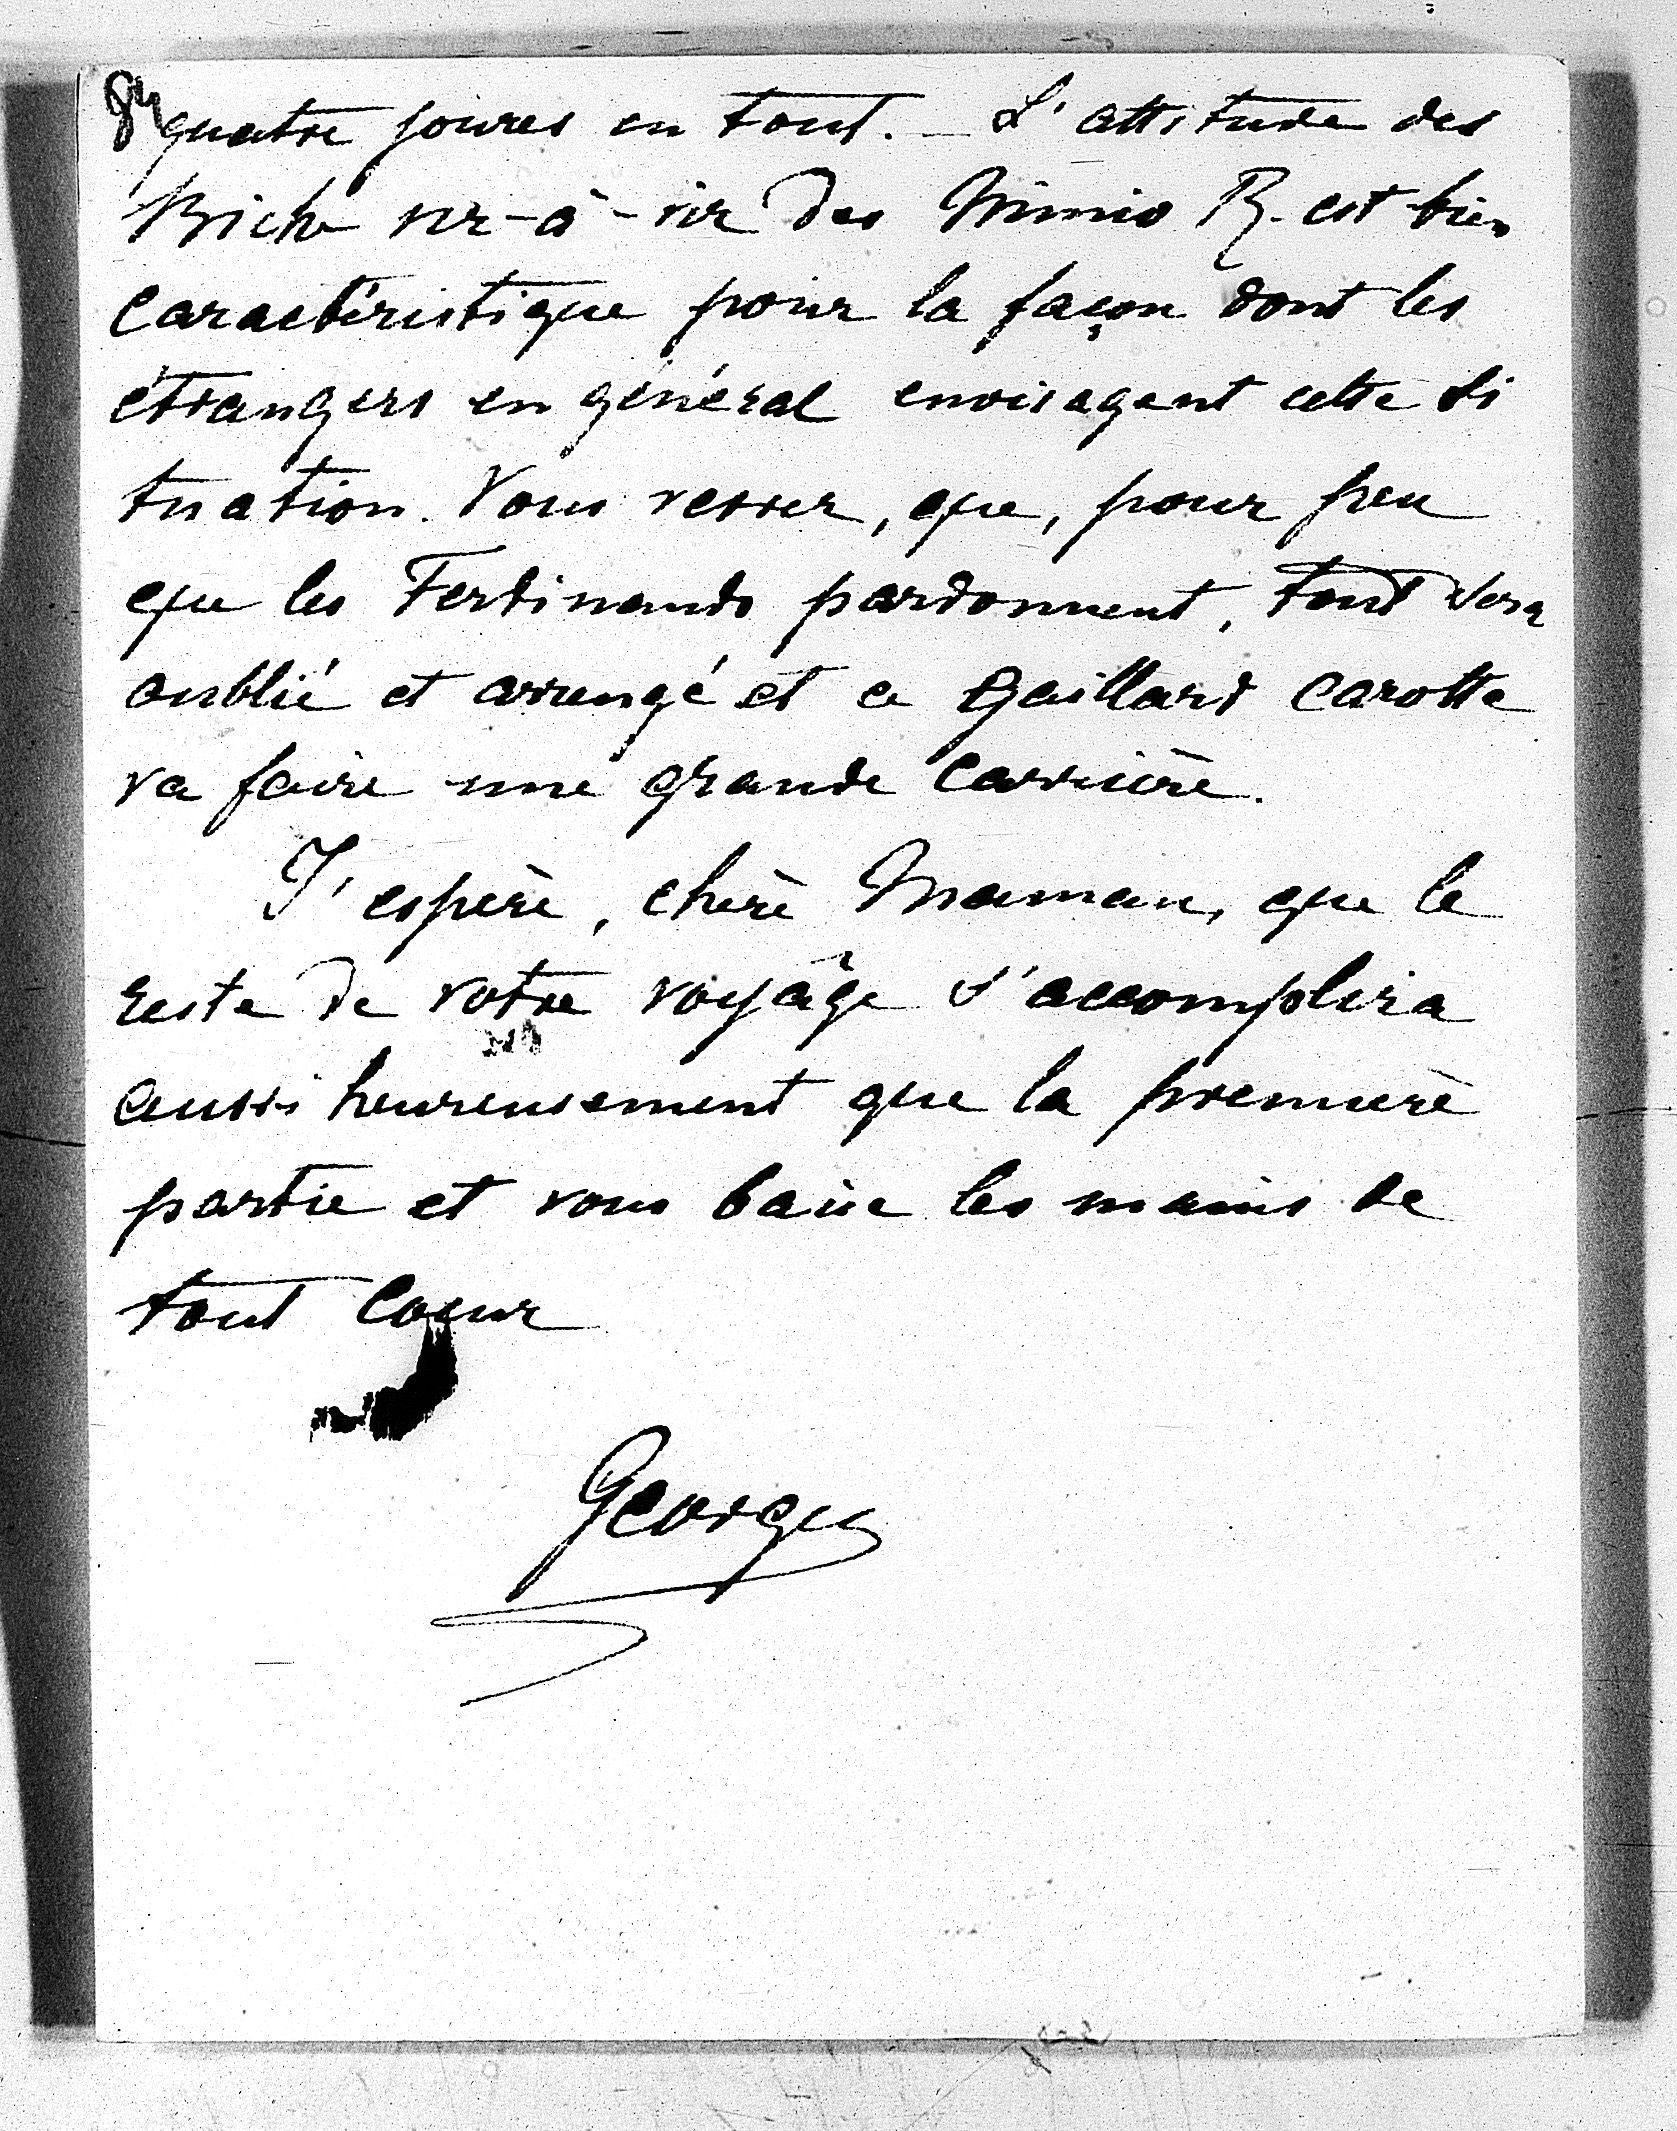 84
quatre joures en tout. — L'attitude des
Biche vis-à-vis des Mimio R. est bien
caractéristique pour la façon dont les
étrangers en général envisagent cette si
tuation. Vous verrer, que, pour peu
que les Ferdinands pardonnent, tout sera
oublié et arrangé et ce Gaillard Carotte
va faire une grande carrière.
J'espère, chère Maman, que le
reste de votre voyâge s'accomplira
aussi heureusement que la première
partie et vous baise les mains de
tout coeur
Georges